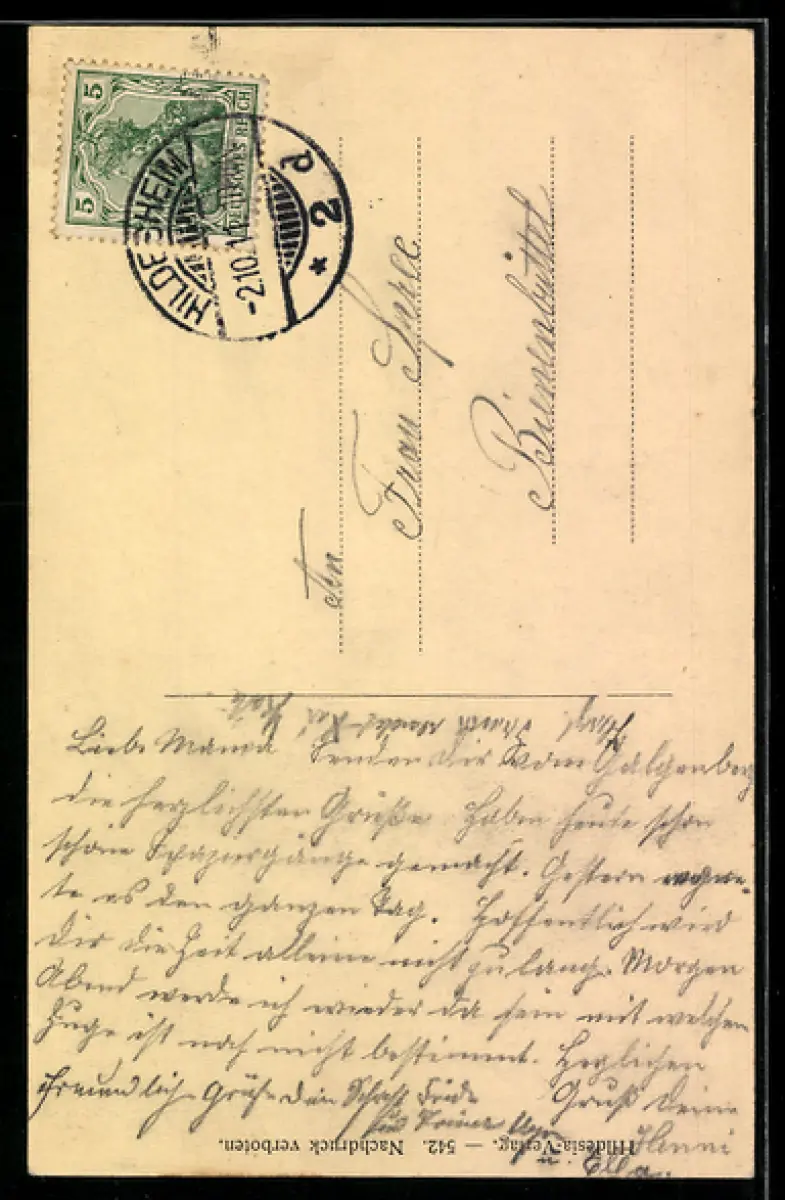 5
5
DEUTSCHES REICH
HILDESHEIM
-2.10.1
* 2 d
An
Frau
Bienenbüttel
Liebe Mama Senden Dir vom Galgenberg
die herzlichsten Grüße. Haben heute schon
schöne Spaziergänge gemacht. Gestern regne-
te es den ganzen Tag. Hoffentlich wird
Dir die Zeit alleine nicht zu lang. Morgen
Abend werde ich wieder da sein mit welchem
Zuge ist noch nicht bestimmt. Herzlichen
Gruß Deine
Henni
u. Ella.
freundlich Grüße Dein
Hildesia-Verlag. — 542. Nachdruck verboten.